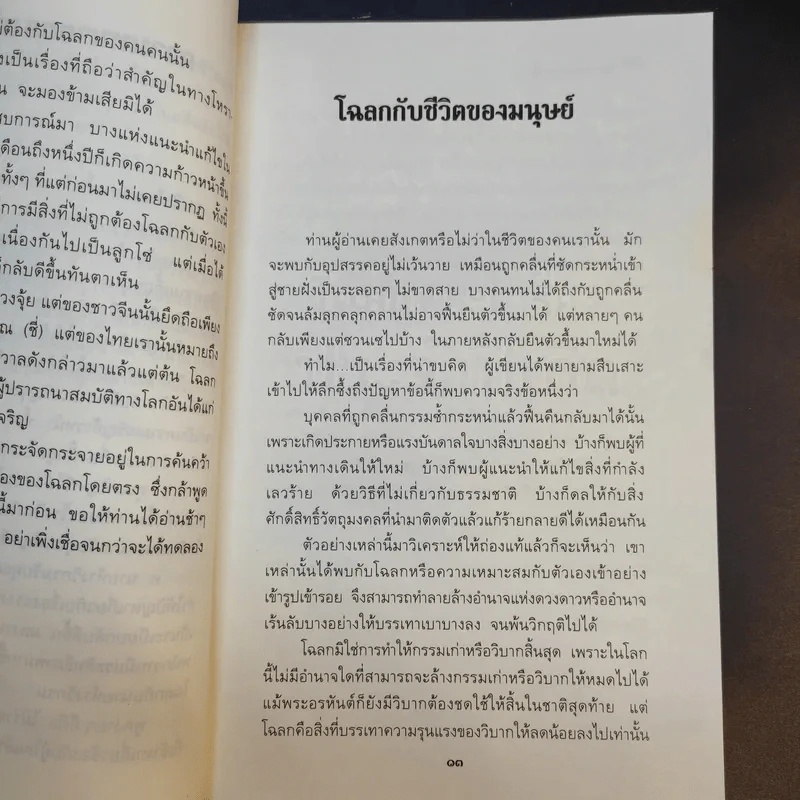 ต้องกับโฉลกของคนคนนั้น
เป็นเรื่องที่ถือว่าสำคัญในทางโหรา
จะมองข้ามเสียมิได้
บการณ์มา บางแห่งแนะนำแก้ไขใน
เดือนถึงหนึ่งปีก็เกิดความก้าวหน้าขึ้น
ทั้งๆ ที่แต่ก่อนมาไม่เคยปรากฏ ทั้งนี้
การมีสิ่งที่ไม่ถูกต้องโฉลกกับตัวเอง
เนื่องกันไปเป็นลูกโซ่ แต่เมื่อได้
กลับดีขึ้นทันตาเห็น
วงจุ้ย แต่ของชาวจีนนั้นยึดถือเพียง
ณ (ชี่) แต่ของไทยเรานั้นหมายถึง
วาลดังกล่าวมาแล้วแต่ต้น โฉลก
ผู้ปรารถนาสมบัติทางโลกอันได้แก่
จริญ
กระจัดกระจายอยู่ในการค้นคว้า
องของโฉลกโดยตรง ซึ่งกล้าพูด
นี้มาก่อน ขอให้ท่านได้อ่านช้าๆ
อย่าเพิ่งเชื่อจนกว่าจะได้ทดลอง
โฉลกกับชีวิตของมนุษย์
ท่านผู้อ่านเคยสังเกตหรือไม่ว่าในชีวิตของคนเรานั้น มัก
จะพบกับอุปสรรคอยู่ไม่เว้นวาย เหมือนถูกคลื่นที่ซัดกระหน่ำเข้า
สู่ชายฝั่งเป็นระลอกๆ ไม่ขาดสาย บางคนทนไม่ได้ถึงกับถูกคลื่น
ซัดจนล้มลุกคลุกคลานไม่อาจฟื้นยืนตัวขึ้นมาได้ แต่หลายๆ คน
กลับเพียงแต่ซวนเซไปบ้าง ในภายหลังกลับยืนตัวขึ้นมาใหม่ได้
ทำไม...เป็นเรื่องที่น่าขบคิด ผู้เขียนได้พยายามสืบเสาะ
เข้าไปให้ลึกซึ้งถึงปัญหาข้อนี้ก็พบความจริงข้อหนึ่งว่า
บุคคลที่ถูกคลื่นกรรมซ้ำกระหน่ำแล้วฟื้นคืนกลับมาได้นั้น
เพราะเกิดประกายหรือแรงบันดาลใจบางสิ่งบางอย่าง บ้างก็พบผู้ที่
แนะนำทางเดินให้ใหม่ บ้างก็พบผู้แนะนำให้แก้ไขสิ่งที่กำลัง
เลวร้าย ด้วยวิธีที่ไม่เกี่ยวกับธรรมชาติ บ้างก็ดลให้กับสิ่ง
ศักดิ์สิทธิ์วัตถุมงคลที่นำมาติดตัวแล้วแก้ร้ายกลายดีได้เหมือนกัน
ตัวอย่างเหล่านี้มาวิเคราะห์ให้ถ่องแท้แล้วก็จะเห็นว่า เขา
เหล่านั้นได้พบกับโฉลกหรือความเหมาะสมกับตัวเองเข้าอย่าง
เข้ารูปเข้ารอย จึงสามารถทำลายล้างอำนาจแห่งดวงดาวหรืออำนาจ
เร้นลับบางอย่างให้บรรเทาเบาบางลง จนพ้นวิกฤติไปได้
โฉลกมิใช่การทำให้กรรมเก่าหรือวิบากสิ้นสุด เพราะในโลก
นี้ไม่มีอำนาจใดที่สามารถจะล้างกรรมเก่าหรือวิบากให้หมดไปได้
แม้พระอรหันต์ก็ยังมีวิบากต้องชดใช้ให้สิ้นในชาติสุดท้าย แต่
โฉลกคือสิ่งที่บรรเทาความรุนแรงของวิบากให้ลดน้อยลงไปเท่านั้น
๑๓